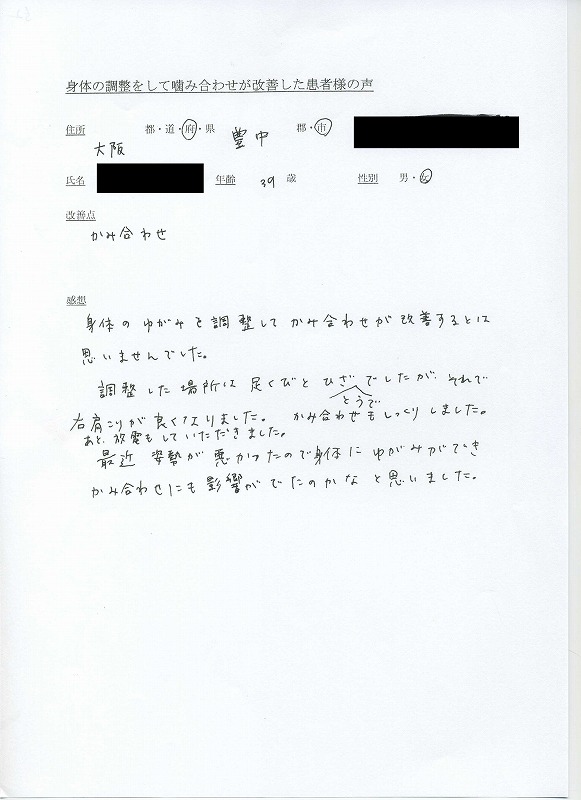 身体の調整をして噛み合わせが改善した患者様の声
住所 大阪 都・道・府・県 豊中 郡・市
氏名 年齢 39 歳 性別 男・女
改善点
かみ合わせ
感想
身体のゆがみを調整してかみ合わせが改善するとは
思いませんでした。
調整した場所は足くびとひざとうででしたが、それで
右肩こりが良くなりました。 かみ合わせもしっくりしました。
あと、放電もしていただきました。
最近 姿勢が悪かったので身体にゆがみができ
かみ合わせにも影響がでたのかなと思いました。